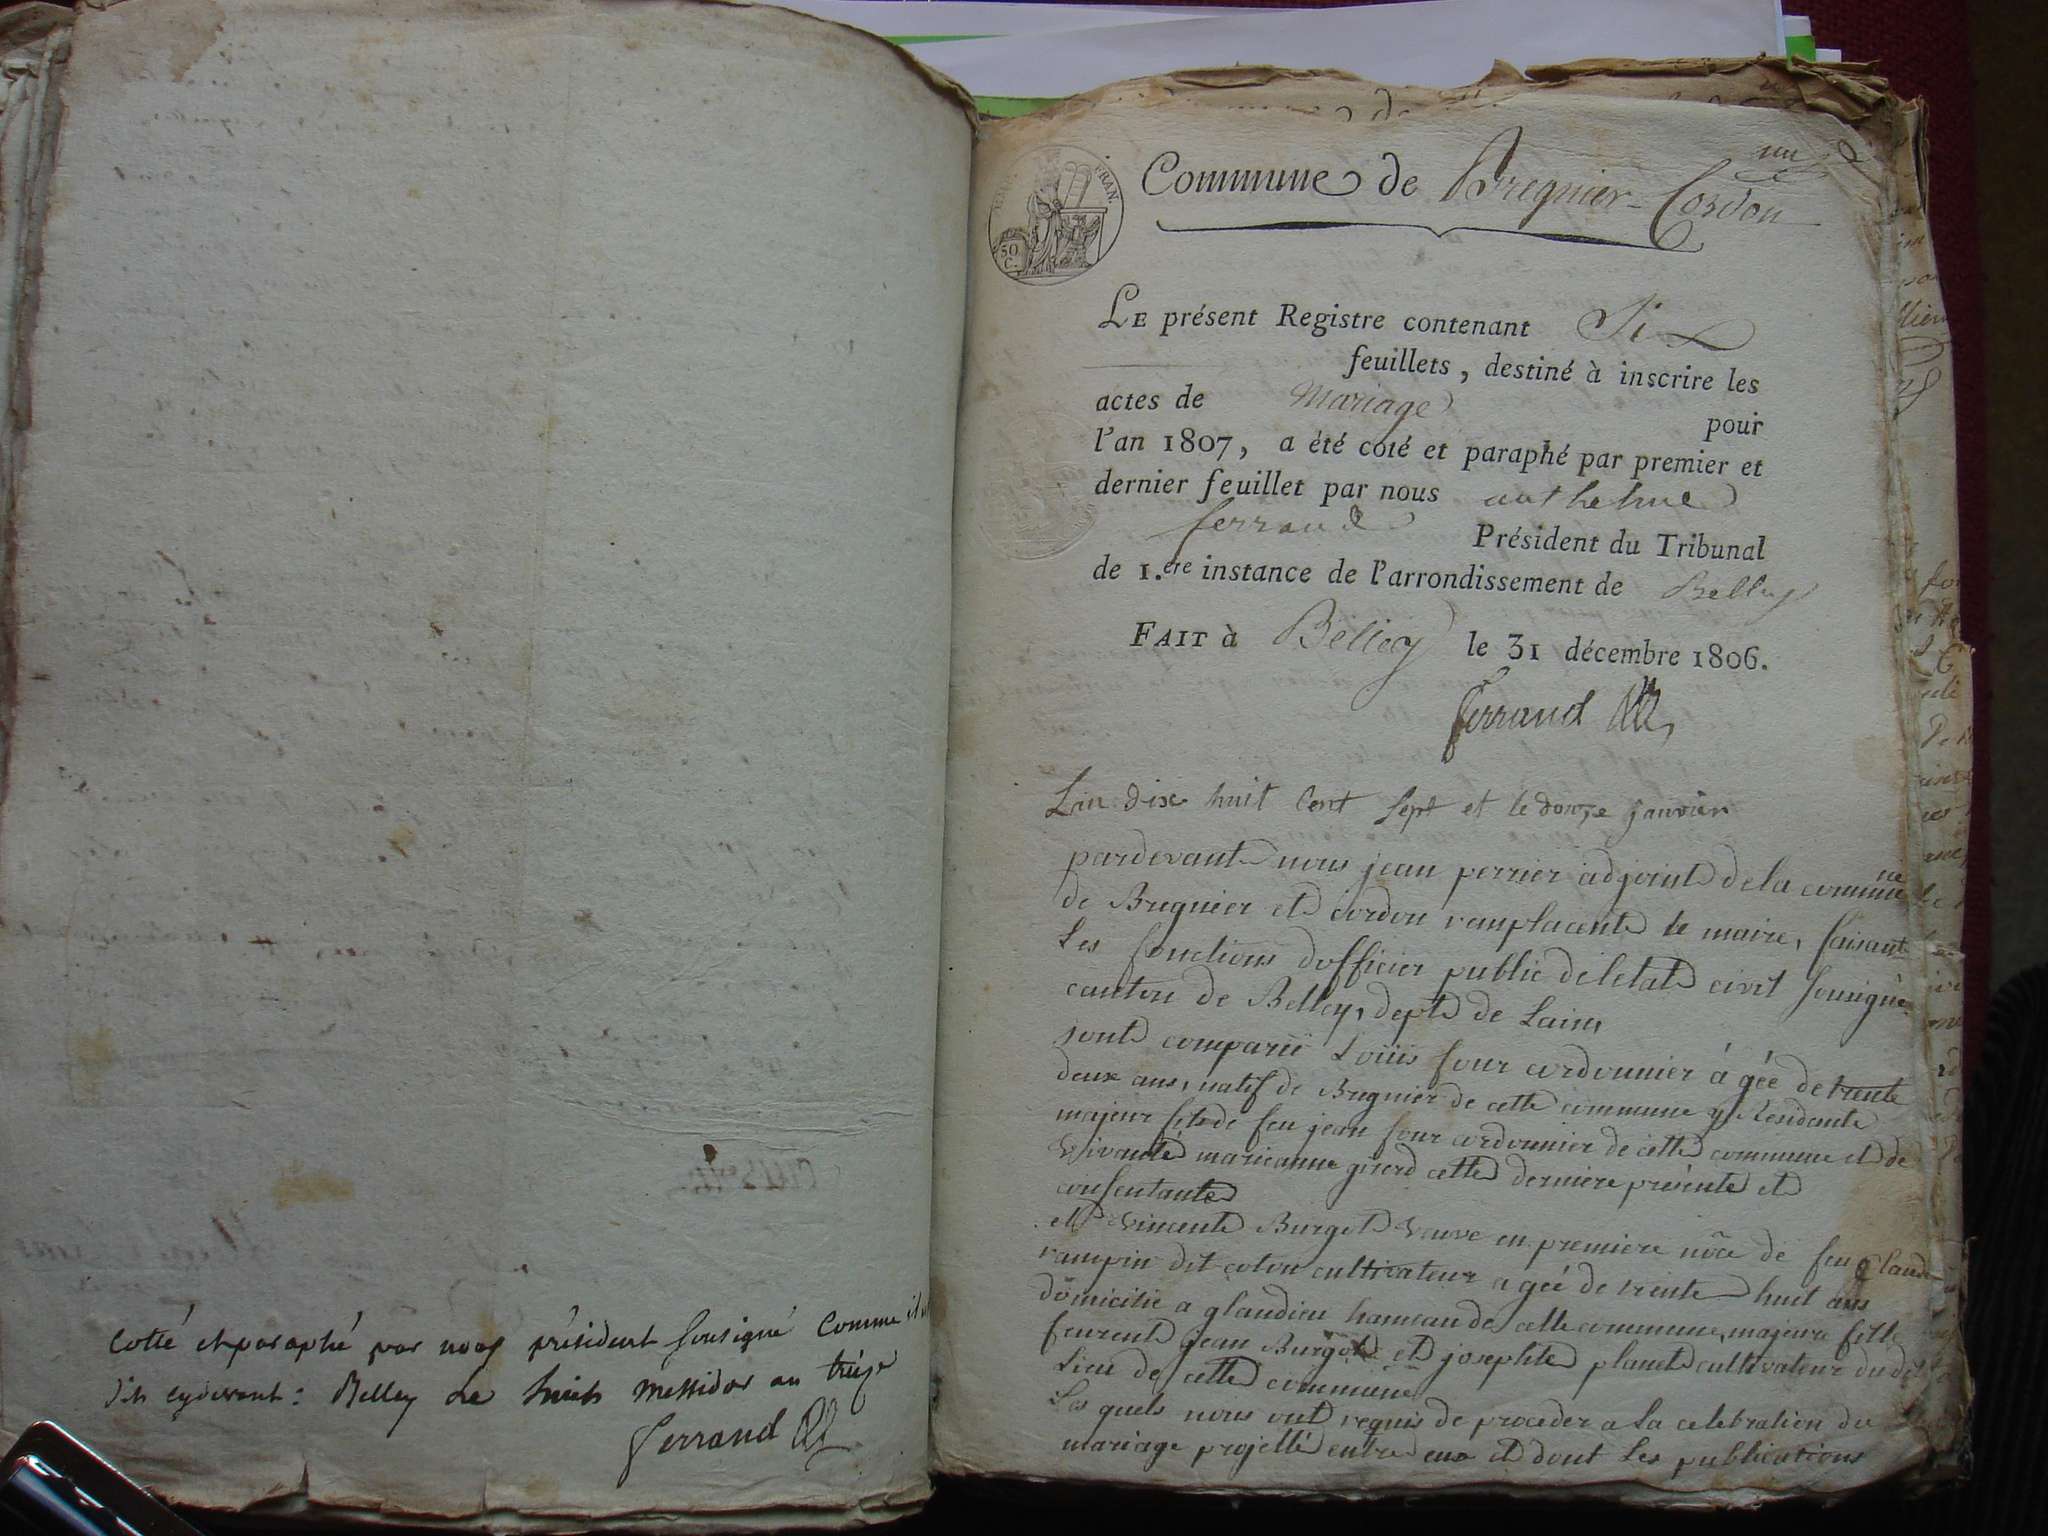 Cotté et paraphé par nous président soussigné comme il est
dit cydevant : Belley le huit Messidor an treize
Ferrand
un
Commune de Bregnier-Cordon
FRAN.
50
C.
LE présent Registre contenant Six
feuillets, destiné à inscrire les
actes de Mariage pour
l'an 1807, a été coté et paraphé par premier et
dernier feuillet par nous anthelme
ferrand Président du Tribunal
de 1.ere instance de l'arrondissement de Belley
FAIT à Belley le 31 décembre 1806.
Ferrand
Lan dix huit Cent Sept et le douze janvier
pardevant nous jean perrier adjoint de la commune
de Bregnier et cordon remplacent le maire, faisant
Les fonctions dofficier public de letat civil sousigné
canton de Belley, dept de Lain,
sont comparu Loüis four cordonnier á gée de trente
deux ans, natif de Bregnier de cette commune y Residante
majeur fils de feu jean four cordonnier de cette commune et de
vivante marieanne girerd cette derniere présente et
consentante
et vincente Burget veuve en premiere nôce de feu Claude
rampin dit coton cultivateur a geé de trente huit ans
domicilié a glandieu hameau de cette commune, majeure fille
feurent jean Burget et josephte planet cultivateur du dit
Lieu de cette commune
Les quels nous ont requis de proceder a la celebration du
mariage projetté entre eux et dont Les publications